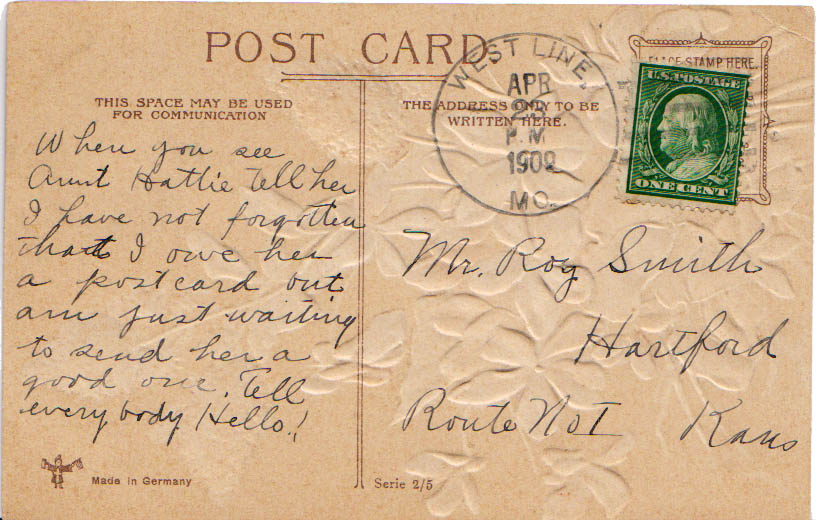 POST CARD
THIS SPACE MAY BE USED
FOR COMMUNICATION
THE ADDRESS ONLY TO BE
WRITTEN HERE.
PLACE STAMP HERE.
WEST LINE,
APR
P.M
1909
MO.
U.S. POSTAGE
ONE CENT
When you see
Aunt Hattie tell her
I have not forgotten
that I owe her
a postcard but
am just waiting
to send her a
good one. Tell
every body Hello!
Mr. Roy Smith
Hartford
Route No 1 Kans
Made in Germany
Serie 2/5